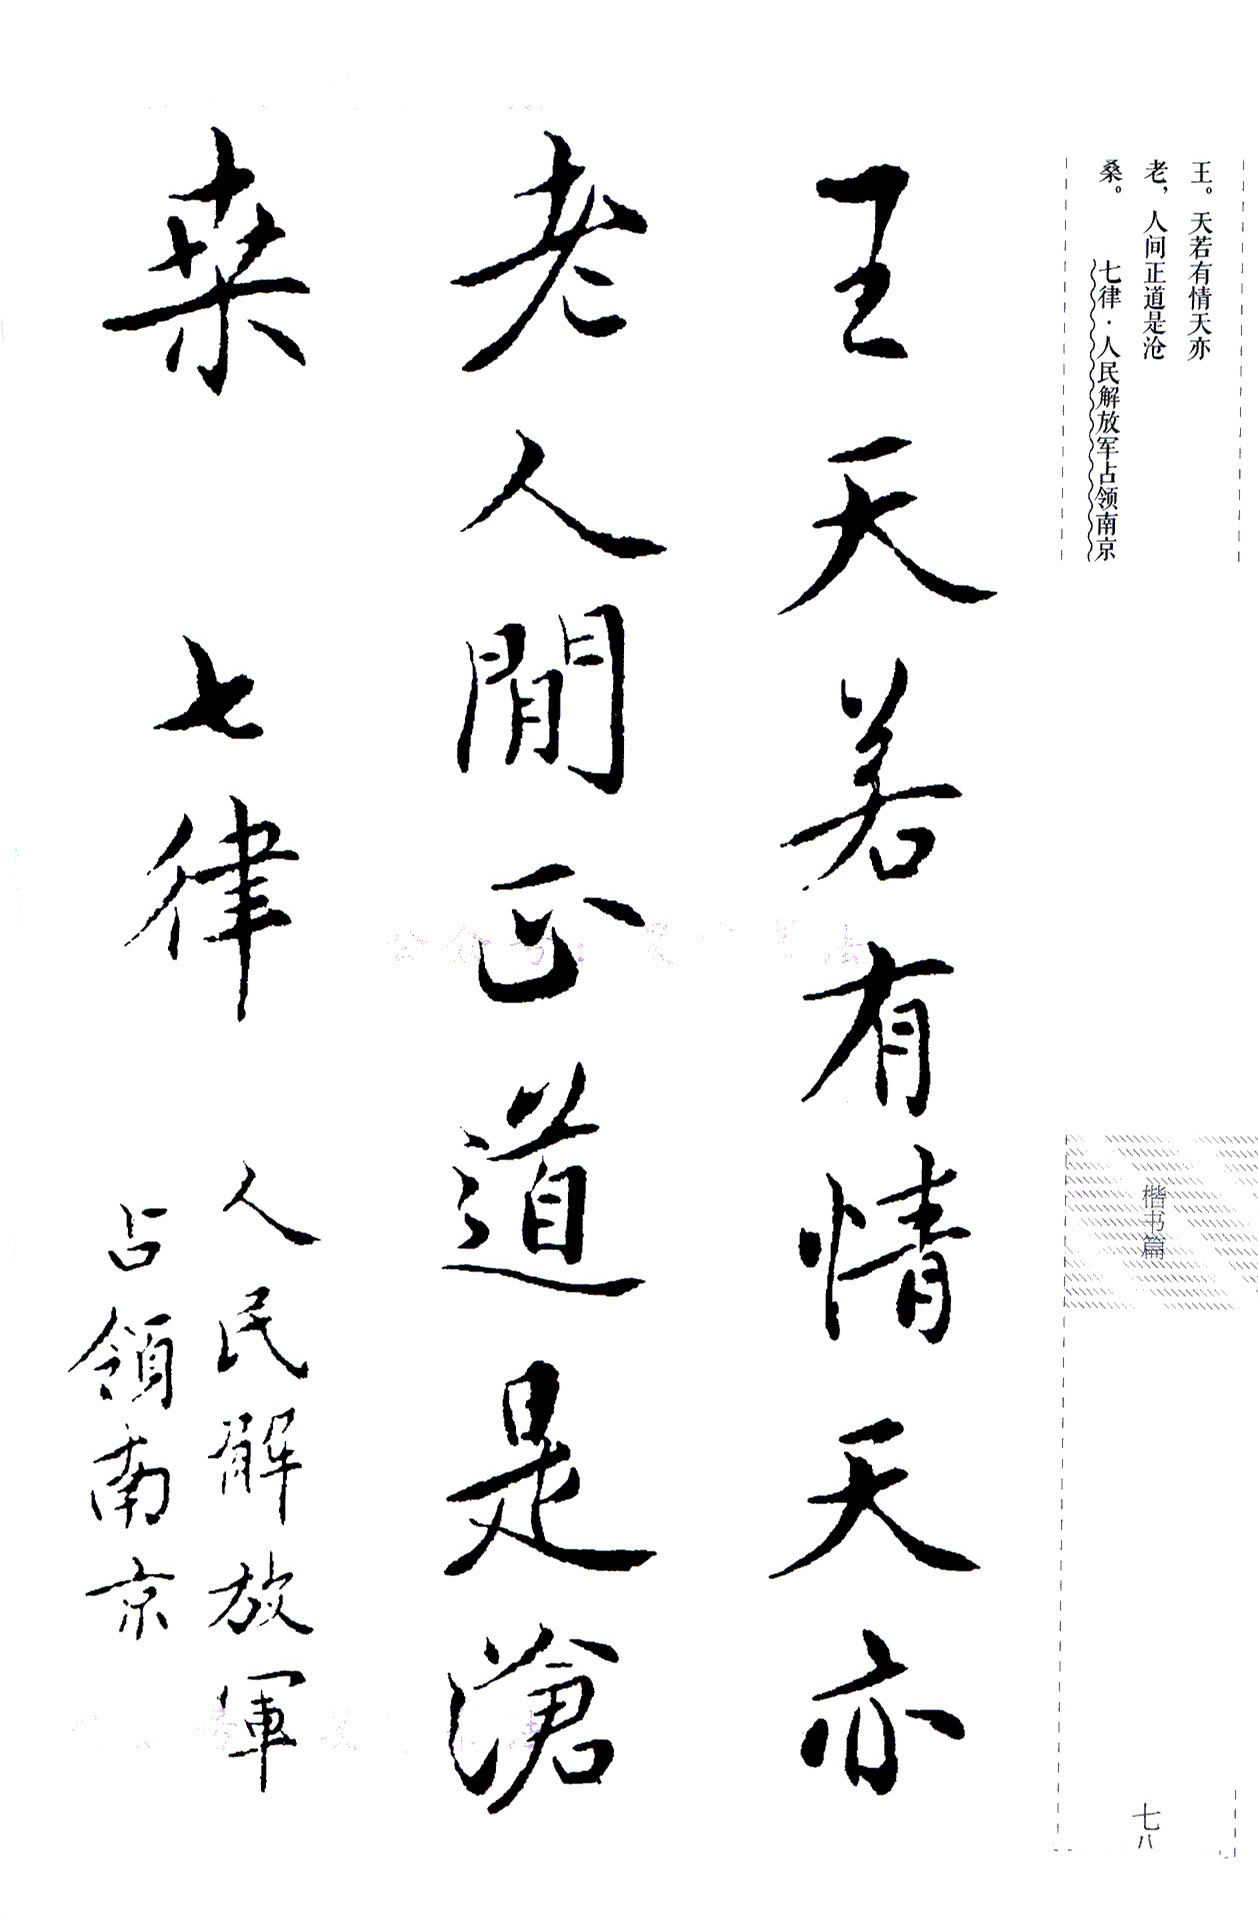 王。天若有情天亦
老，人间正道是沧
桑。 七律·人民解放军占领南京
楷书篇
七八
王天若有情天亦
老人間正道是滄
桒 七律
人民解放軍
占領南京